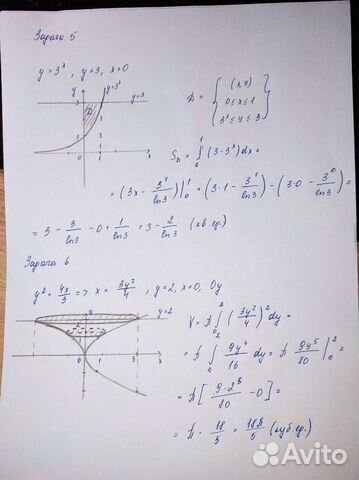 Задача 5
y = 3^x , y = 3, x = 0
y
y=3^x
3
y=3
D
1
0 1 x
D = { (x,y)
0 ≤ x ≤ 1
3^x ≤ y ≤ 3 }
S_D = ∫_0^1 (3-3^x)dx =
= (3x - 3^x/ln3)|_0^1 = (3·1 - 3^1/ln3) - (3·0 - 3^0/ln3) =
= 3 - 3/ln3 - 0 + 1/ln3 = 3 - 2/ln3 (кв.ед.)
Задача 6
y² = 4x/3 => x = 3y²/4 , y=2, x=0, Oy
y
y=2
0 1 3 x
V = π ∫_0^2 (3y²/4)² dy =
= π ∫_0^2 9y⁴/16 dy = π 9y⁵/80 |_0^2 =
= π [ 9·2⁵/80 - 0 ] =
= π · 18/5 = 18π/5 (куб.ед.)
Avito